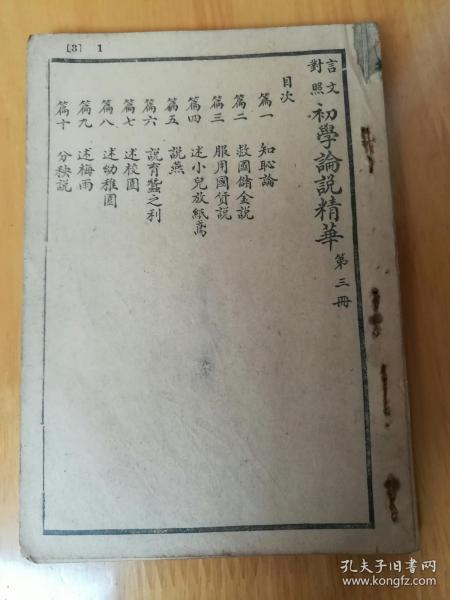 [3] 1
言文對照 初學論說精華 第三冊
目次
篇一 知恥論
篇二 救國儲金說
篇三 服用國貨說
篇四 述小兒放紙鳶
篇五 說燕
篇六 說育蠶之利
篇七 述校園
篇八 述幼稚園
篇九 述梅雨
篇十 分秧說
孔夫子旧书网
www.kongfz.com